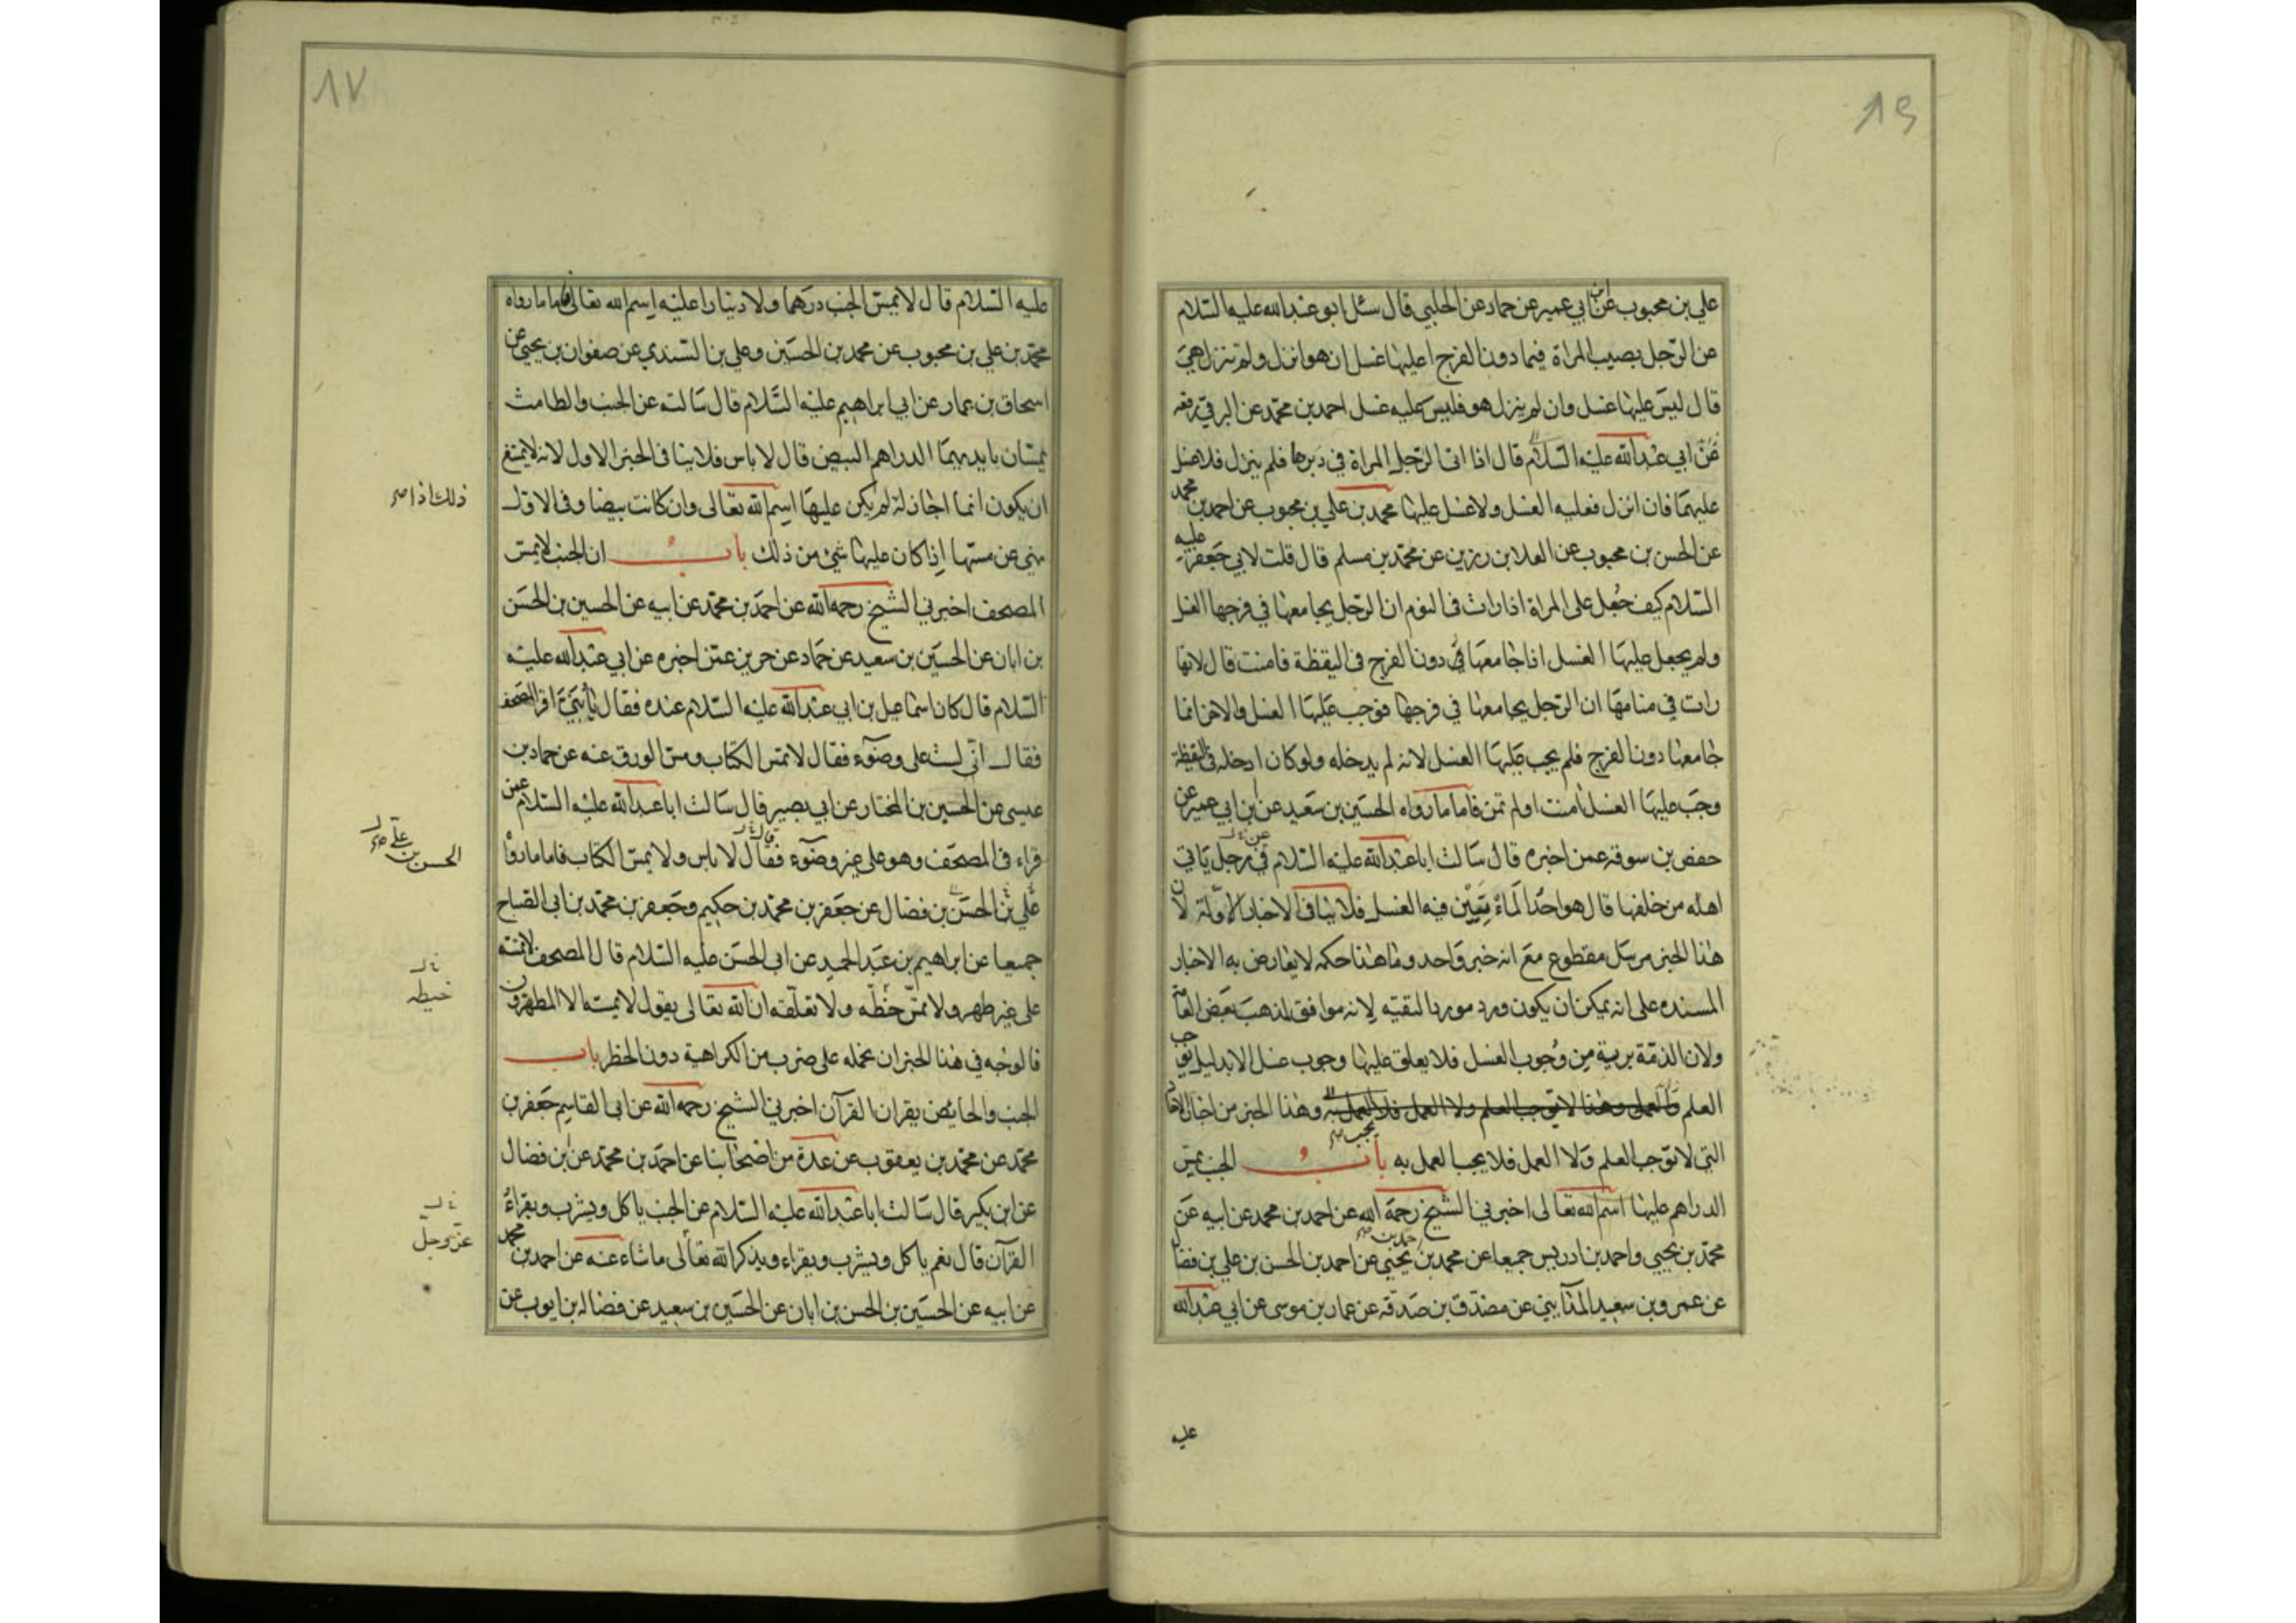 ٨٦
علي بن محبوب عن ابن ابي عمير عن حماد عن الحلبي قال سئل ابو عبد الله عليه السلام
عن الرجل يصيب المراة فيما دون الفرج اعليها غسل ان هو انزل ولم تنزل هي
قال ليس عليها غسل وان لم ينزل هو فليس عليه غسل احمد بن محمد عن البرقي رفعه
عن ابي عبد الله عليه السلام قال اذا اتا الرجل المراة في دبرها فلم ينزل فلا غسل
عليهما فان انزل فعليه الغسل ولا غسل عليها محمد بن علي بن محبوب عن احمد بن محمد
عن الحسن بن محبوب عن العلا بن رزين عن محمد بن مسلم قال قلت لابي جعفر عليه
السلام كيف جعل على المراة اذا رات في النوم ان الرجل يجامعها في فرجها الغسل
ولم يجعل عليها الغسل اذا جامعها في دون الفرج في اليقظة فامنت قال لانها
رات في منامها ان الرجل يجامعها في فرجها فوجب عليها الغسل والاخر انما
جامعها دون الفرج فلم يجب عليها الغسل لانه لم يدخله ولو كان ادخله في اليقظة
وجب عليها الغسل امنت او لم تمن فاما ما رواه الحسين بن سعيد عن ابن ابي عمير عن
حفص بن سوقة عمن اخبره قال سالت ابا عبد الله عليه السلام في رجل ياتي
عن خ ل
اهله من خلفها قال هو احد الماتيين فيه الغسل فلا ينافي الاخبار الاولة لان
هذا الخبر مرسل مقطوع مع انه خبر واحد وما هذا حكمه لا يعارض به الاخبار
المسنده على انه يمكن ان يكون ورد مورد التقيه لانه موافق لمذهب بعض العامة
ولان الذمة برية من وجوب الغسل فلا يعلق عليها وجوب غسل الا بدليل يوجب
العلم والعمل وهذا لا يوجب العلم ولا العمل فلا العمل به وهذا الخبر من اخبار الاحاد
يجب صح
التي لا توجب العلم ولا العمل فلا يجب العمل به باب الجنب يمس
الدراهم عليها اسم الله تعالى اخبرني الشيخ رحمه الله عن احمد بن محمد عن ابيه عن
محمد بن يحيى واحمد بن ادريس جميعا عن محمد بن احمد بن يحيى عن احمد بن الحسن بن علي بن فضال
عن عمرو بن سعيد المدايني عن مصدق بن صدقه عن عمار بن موسى عن ابي عبد الله
عليه
٨٧
عليه السلام قال لا يمس الجنب درهما ولا دينارا عليه اسم الله تعالى فاما ما رواه
محمد بن علي بن محبوب عن محمد بن الحسين وعلي بن السندي عن صفوان بن يحيى عن
اسحاق بن عمار عن ابي ابراهيم عليه السلام قال سالته عن الجنب والطامث
يمسان بايديهما الدراهم البيض قال لا باس فلا ينافي الخبر الاول لانه لا يمتنع
ان يكون انما اجاز له لم يكن عليها اسم الله تعالى وان كانت بيضا وفي الاول
ذلك اذا صح
نهي عن مسها اذا كان عليها شئ من ذلك باب ان الجنب لا يمس
المصحف اخبرني الشيخ رحمه الله عن احمد بن محمد عن ابيه عن الحسين بن الحسن
بن ابان عن الحسين بن سعيد عن حماد عن حريز عمن اخبره عن ابي عبد الله عليه
السلام قال كان اسماعيل بن ابي عبد الله عليه السلام عنده فقال يا بني اقرا المصحف
فقال اني لست على وضوء فقال لا تمس الكتاب ومس الورق عنه عن حماد بن
عيسى عن الحسين بن المختار عن ابي بصير قال سالت ابا عبد الله عليه السلام عمن
قراء في المصحف وهو على غير وضوء فقال لا باس ولا يمس الكتاب فاما ما رواه
قال خ ل
الحسن بن علي صح
علي بن الحسن بن فضال عن جعفر بن محمد بن حكيم وجعفر بن محمد بن ابي الصباح
جميعا عن ابراهيم بن عبد الحميد عن ابي الحسن عليه السلام قال المصحف لا تمسه
على غير طهر ولا تمس خطه ولا تعلقه ان الله تعالى يقول لا يمسه الا المطهرون
خ ل
خيطه
فالوجه في هذا الخبر ان نحمله على ضرب من الكراهية دون الحظر باب
الجنب والحائض يقران القرآن اخبرني الشيخ رحمه الله عن ابي القاسم جعفر بن
محمد عن محمد بن يعقوب عن عدة من اصحابنا عن احمد بن محمد عن ابن فضال
عن ابن بكير قال سالت ابا عبد الله عليه السلام عن الجنب ياكل ويشرب ويقراء
القرآن قال نعم ياكل ويشرب ويقراء ويذكر الله تعالى ما شاء عنه عن احمد بن محمد
خ ل
عز وجل
عن ابيه عن الحسين بن الحسن بن ابان عن الحسين بن سعيد عن فضاله بن ايوب عن